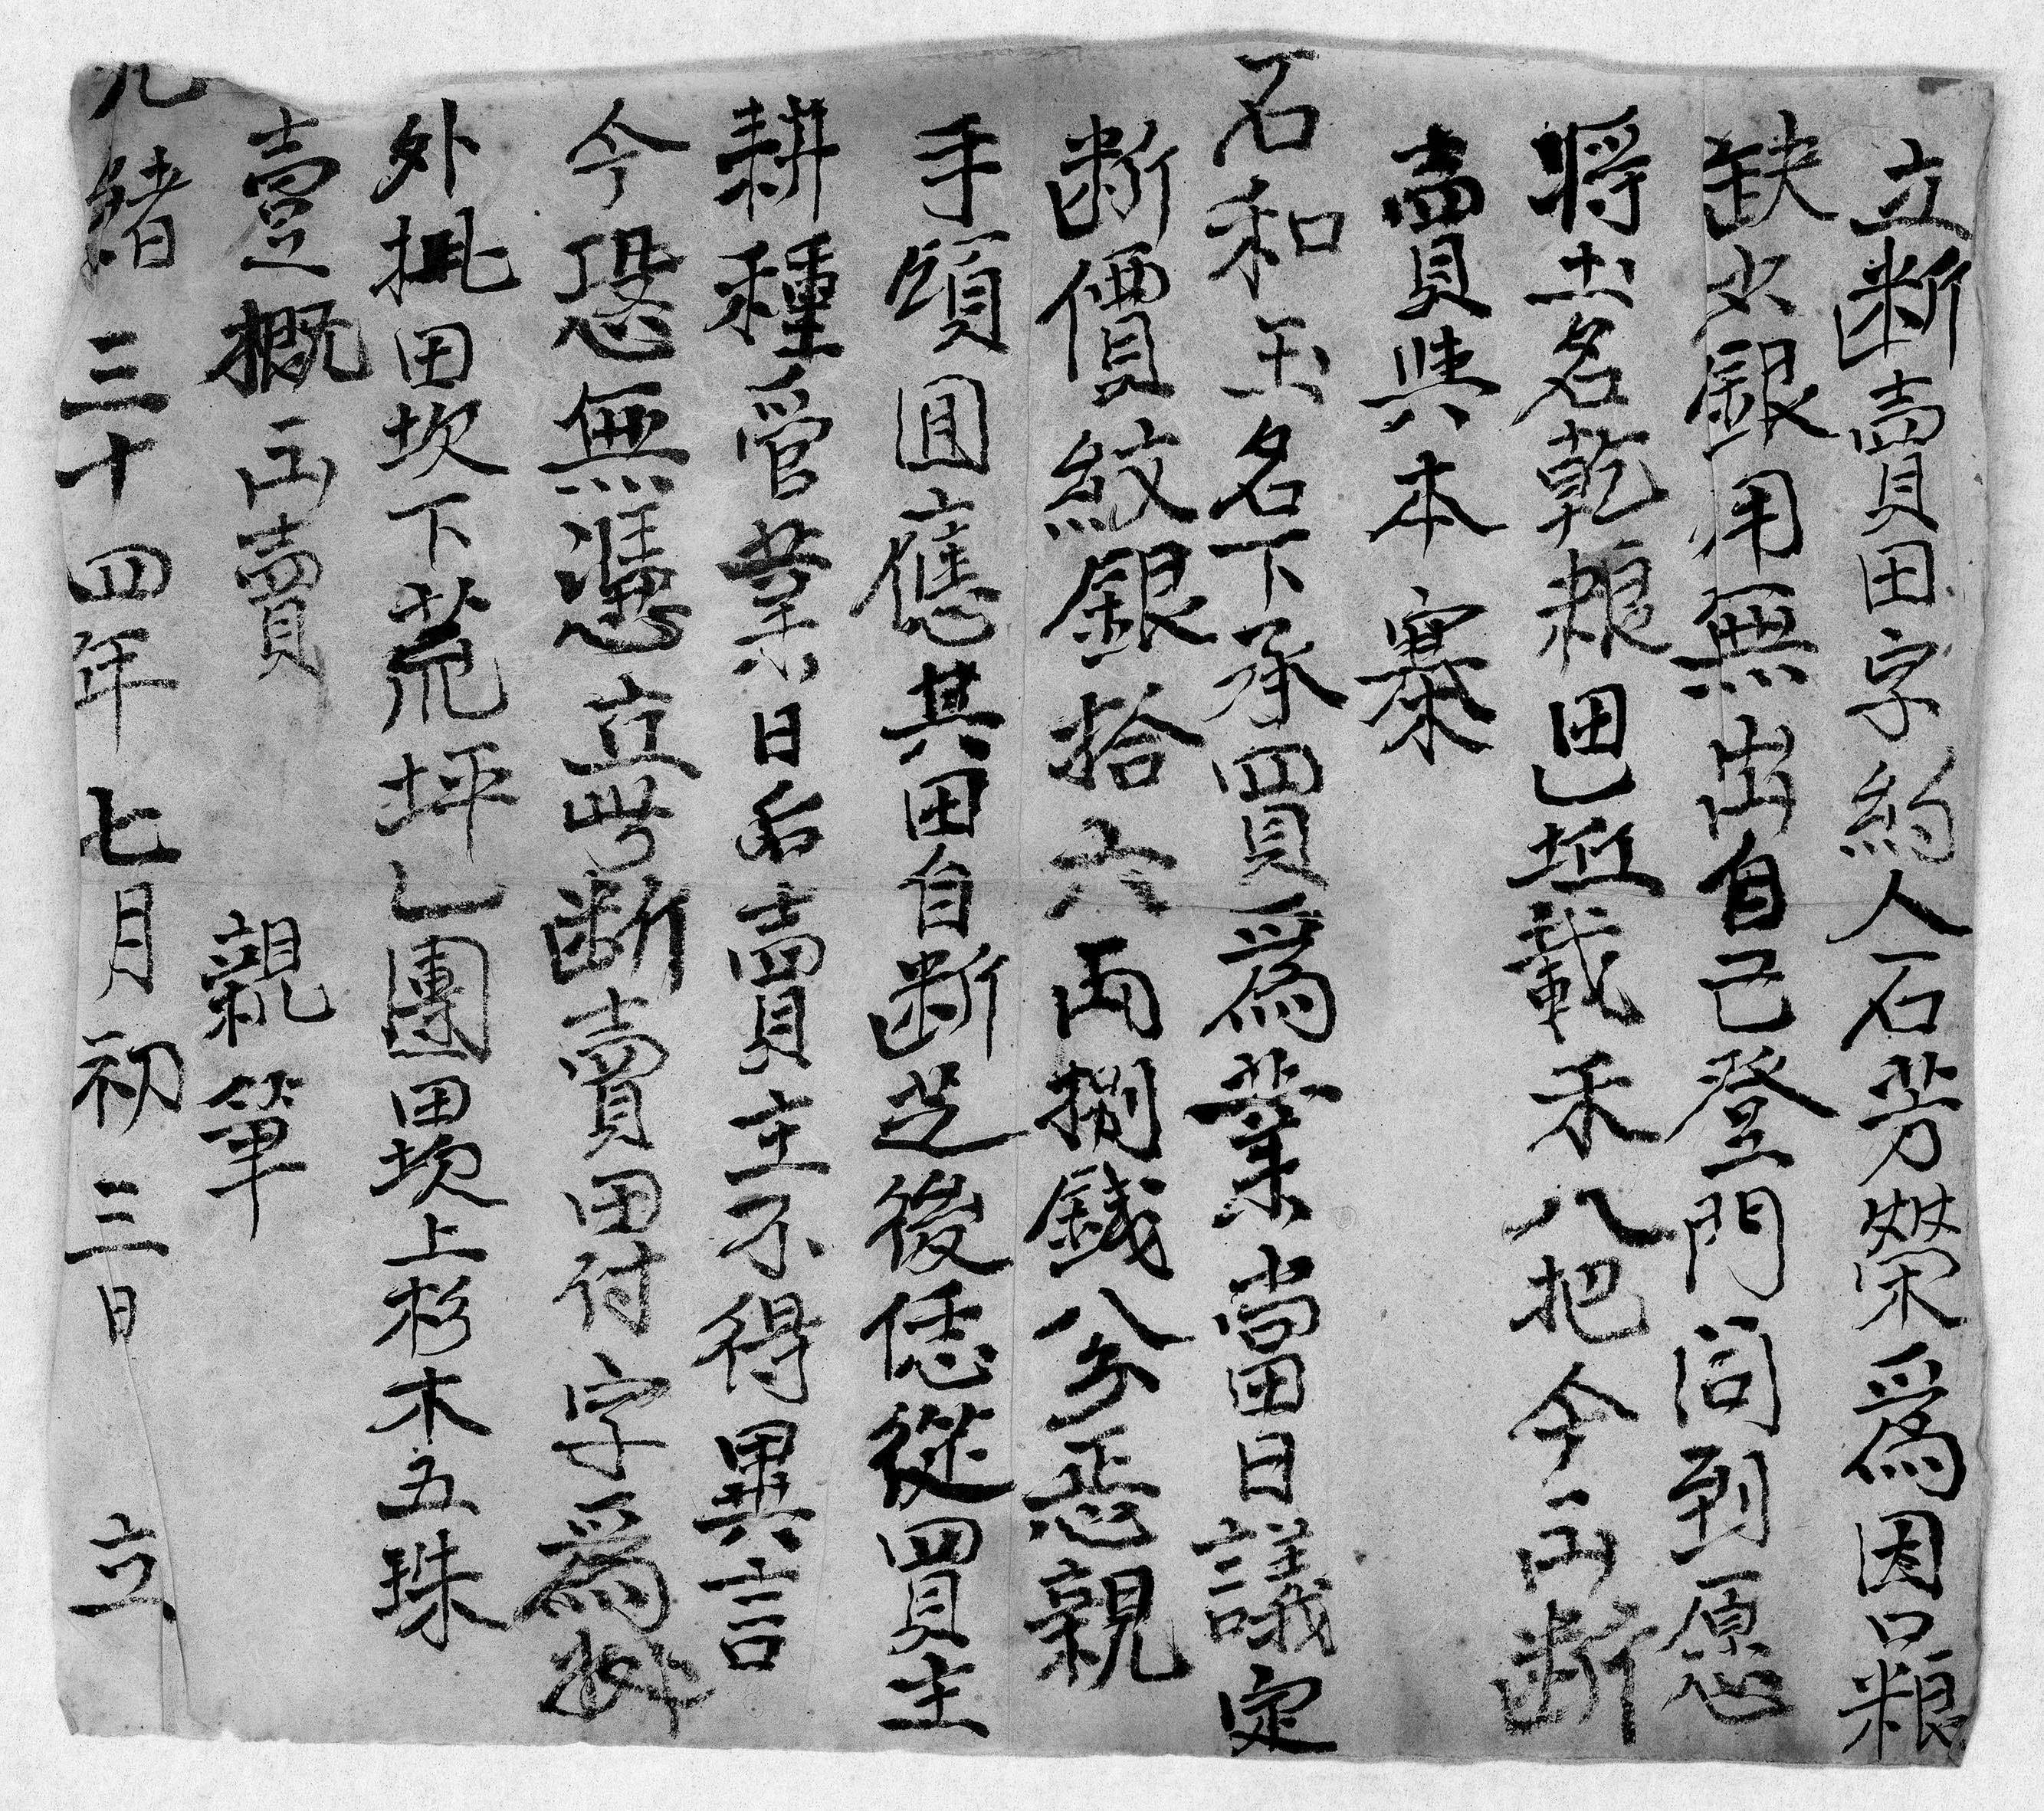 立断賣田字約人石芳榮爲因口粮
缺少銀用無出自己登門问到愿
將土名乾粮田坵載禾八把今断
賣與本寨
石和玉名下承買爲業當日議定
断價紋銀拾六両捌銭八分整親
手領囬應其田自断之後恁從買主
耕種管業日后賣主不得異言
今恐無憑立此断賣田付字爲據
外批田坎下荒坪乚團田坎上杉木五珠
壹概賣 親筆
光緒三十四年七月初三日 立